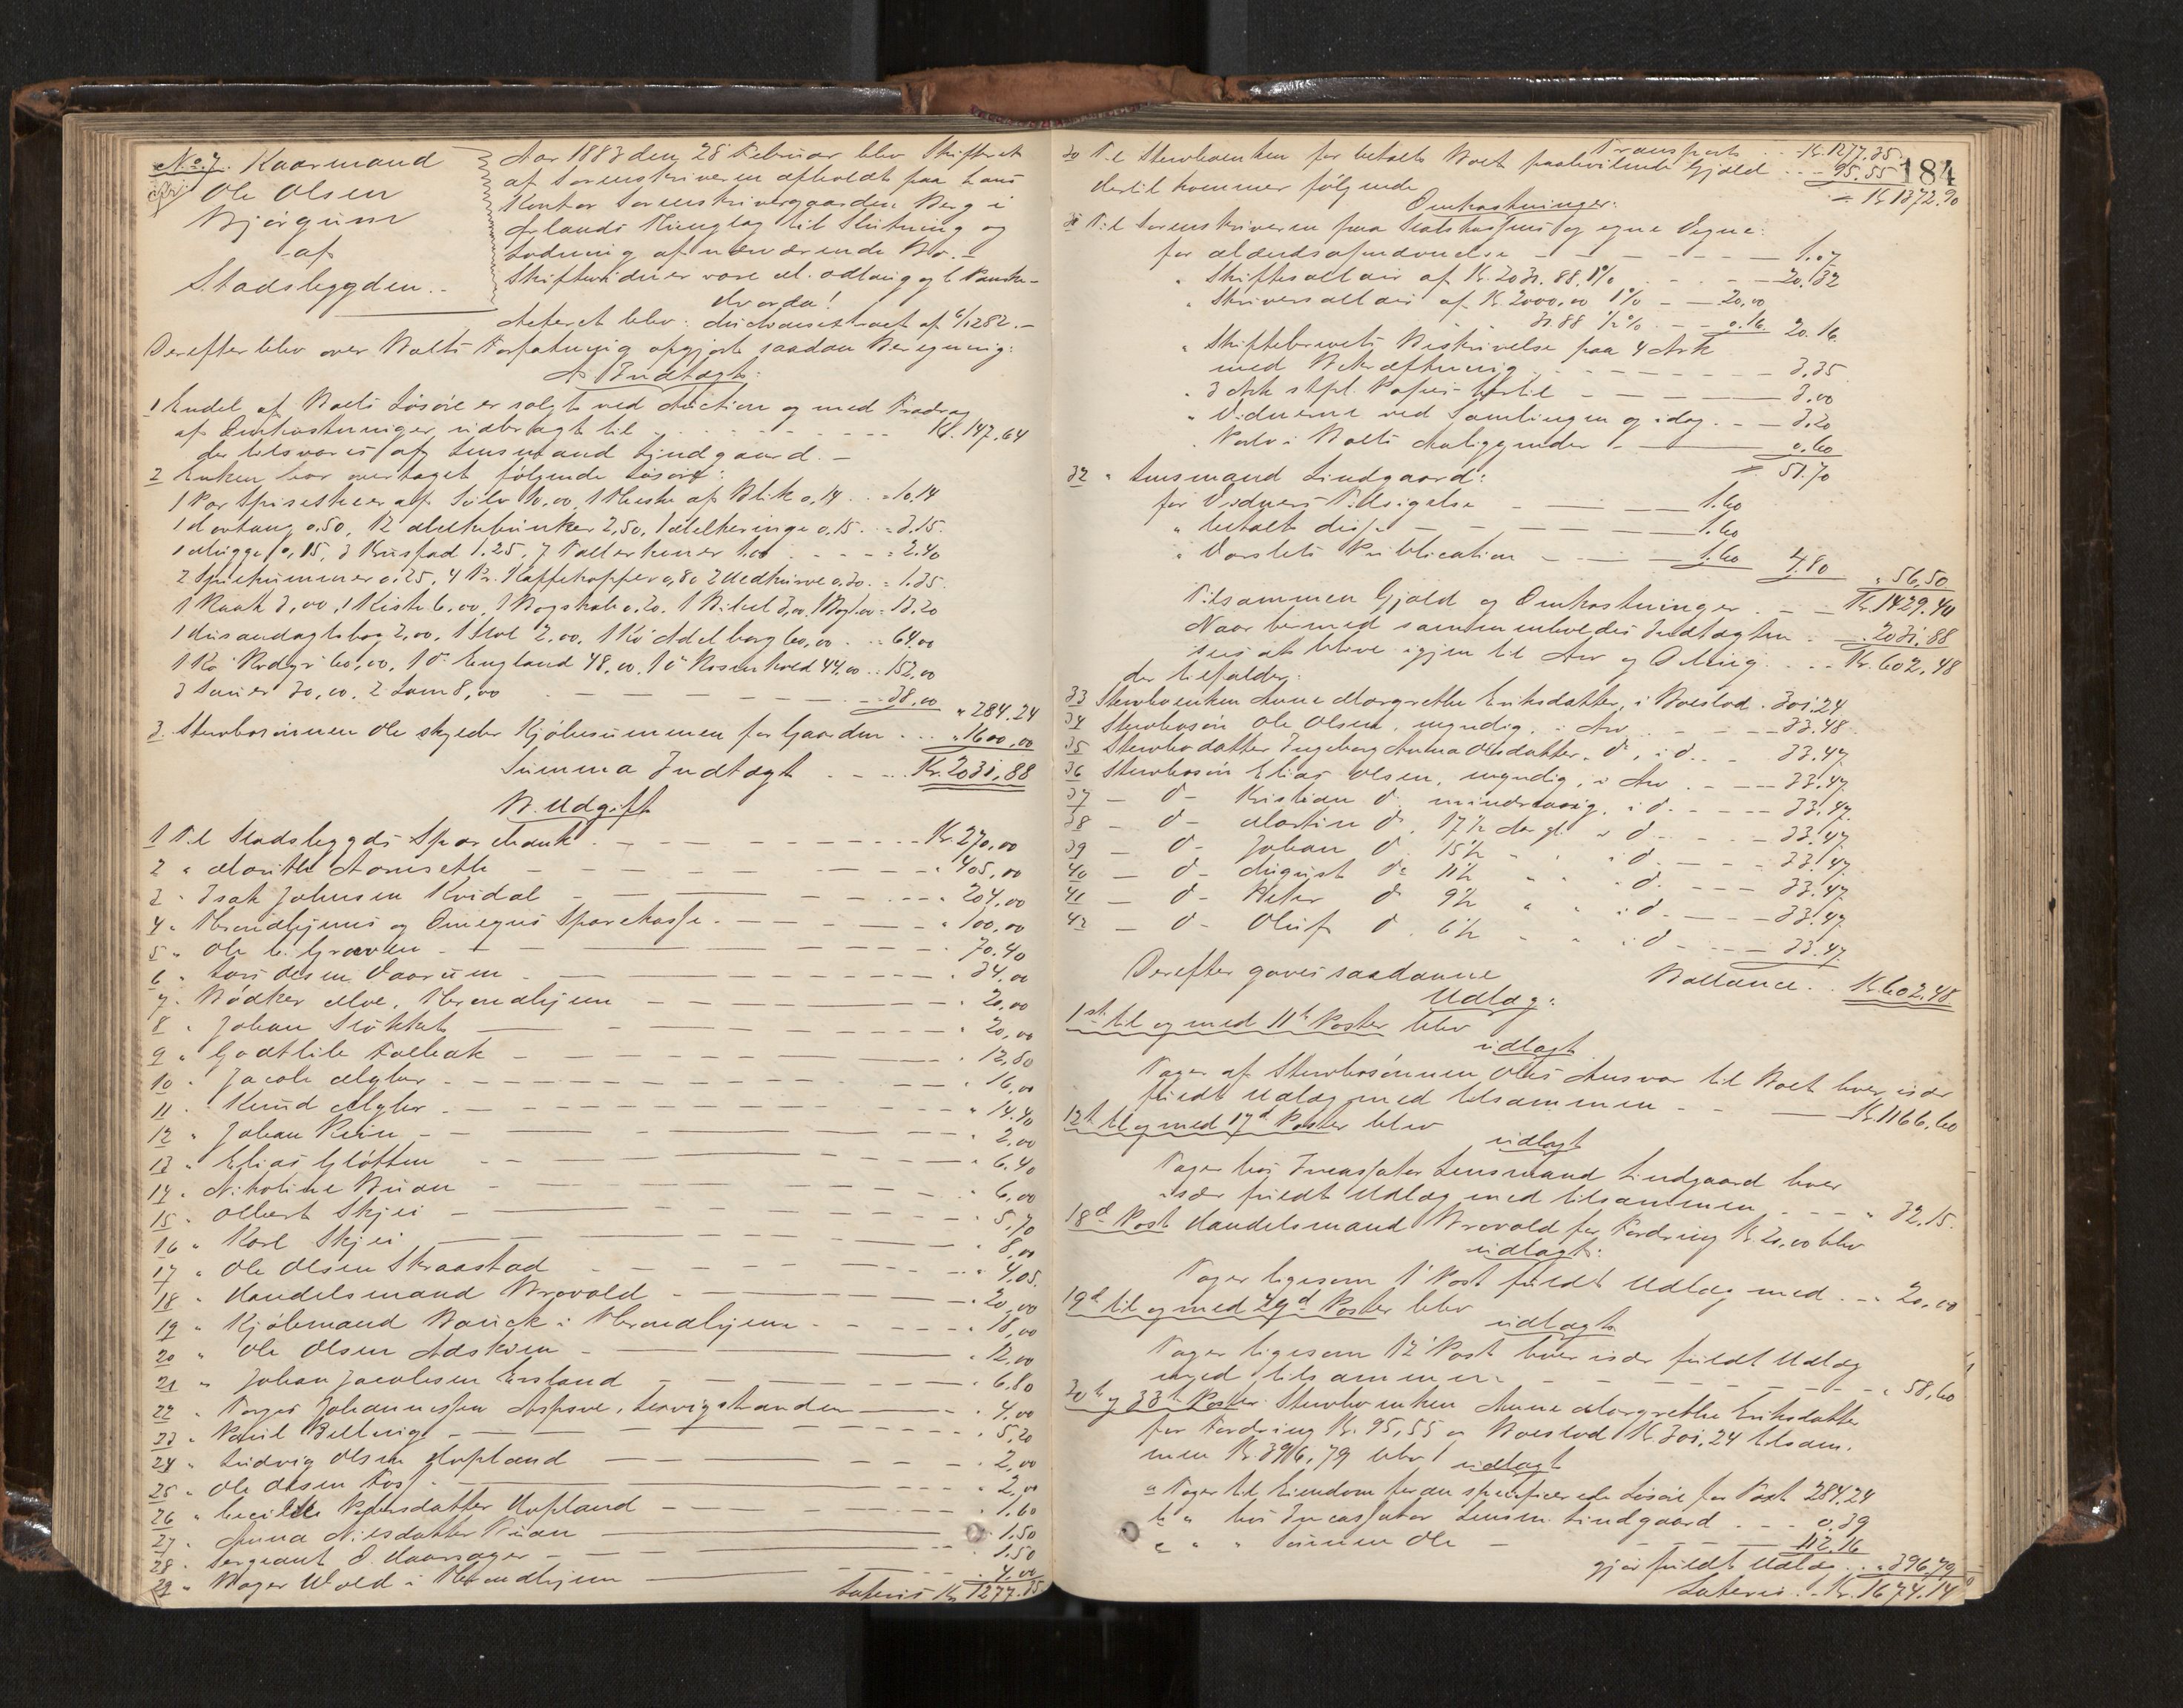 No. 7. Kaarmand
Ole Olsen
Bjørgum
af
Stadsbygden.
Aar 1883 den 28 Februar blev Skifteret
af Sorenskriveren afholdt paa hans
Kontor Sorenskrivergaarden Berg i
Ørlands Thinglag til Slutning og
Lodning af nærværende Bo.
Skiftevidner vare
hvorda!
Acteret blev: Auctionsextract af
Derefter blev over Boets Forfatning opgjort saadan Beregning:
A. Indtægt:
1 Endel af Boets Løsøre er solgt ved Auction og med Fradrag
af Omkostninger udbragt til - - - Kr. 147.64
der tilsvares af Lensmand Lindgaard. -
2 Enken har overtaget følgende Løsøre:
1 Par Spiseskeer af Sølv 10,00, 1 Æske af Blik 0,14 . . = 10.14
1 0,50, 12 Melkebunker 2,50, 1 0,15 . . = 3.15
1 Mugge 0,15, 3 Krusfad 1.25, 7 Tallerkener 1.00 - - - = 2.40
2 0.25, 4 Pr. Kaffekopper 0,80 2 Vedkurve 0,30. = 1.35
1 3,00, 1 Kiste 6.00, 1 0.20. 1 Bibel 3,00, 1 Bog 1.00 = 13.20
1 Husandagtsbog 2,00, 1 Stol 2.00. 1 Ko Adelborg 60,00 . . = 64.00
1 Ko Rødgri 60,00, 1 do England 48,00. 1 do Rosenkold 44,00 . . = 152,00
3 Sauer 30,00. 2 Lam 8,00 - - - 38,00 " 284.24
3. Sterbosønnen Ole skylder Kjøbesummen for Gaarden . . . " 1600,00
Summa Indtægt . - - . Kr. 2031,88
B. Udgift
1 Til Stadsbygds Sparebank - - - Kr. 270,00
2 " Marithe Aarnseth - - - " 405,00
3 " Isak Johnsen Kvidal - - - " 204,00
4 " Throndhjems og Omegns Sparekasse - - - " 100,00
5 " Ole E. Graven - - - 70.40
6 " Lars Olsen Vaarum - - - " 34,00
7 " Bødker Moe, Throndhjem - - - " 20,00
8 " Johan Støkket - - - " 20,00
9 " Godtlib Falbak - - - " 12,80
10 " Jacob Myhr - - - " 16,00
11 " Knud Myhr - - - " 14.40
12 " Johan Rein - - - " 2,00
13 " Elias Gløtten - - - " 6.40
14 " Nikoline Buan - - - " 6,00
15 " Albert Skjei - - - " 5,70
16 " Karl Skjei - - - " 8,00
17 " Ole Olsen Skraastad - - - " 4,05.
18 " Handelsmand Brovold - - - " 20,00
19 " Kjøbmand Bauck i Throndhjem - - - " 18,00
20 " Ole Olsen Askjem - - - " 12,00
21 " Johan Jacobsen Ersland - - - " 6.80
22 " Torger Johannessen , Leirvigstranden - - - " 4,00
23 " Paul Belling - - - " 5,20
24 " Ludvig Olsen Hopland - - - " 2,00
25 " Ole Olsen Foss - - - " 2,00
26 " Cecilie Pedersdatter Hopland - - - " 1.60
27 " Anna Nilsdatter Buan - - - " 1.50
28 " Sergeant O. Haarsager - - - " 1.50
29 " Bager Wold i Throndhjem - - - " 4,00
Lateris Kr 1277.35
184
Transport . . . Kr. 1277.35
30 Til Sterboenken for betalt Boet paahvilende Gjæld . . . 95.55
dertil kommer følgende = Kr. 1372.90
Omkostninger:
31 Til Sorenskriveren paa Statskassens og egne Vegne:
for - - - 1.07
" Skiftesallair af Kr. 2031.88. 1% - - - 20.32
" Skriversallair af Kr. 2000,00 1% - - 20,00
31.88 ½% - - 0.16 20.16
" Skiftebrevets Beskrivelse paa 4 Ark
med Bekræftning - - - 3.35
" 3 Ark stpl. Papir hertil - - - 3.00
" Vidnerne ved Samlingen og idag - - - 3.20
" Porto i Boets Anliggender - - - 0.60
= 51.70
32 " Lensmand Lindgaard:
for Vidners Tilsigelse - - - 1.60
" betalt disse - - - 1.60
" Varslets Publication - - - 1.60 4.80 " 56.50
Tilsammen Gjæld og Omkostninger . - - Kr. 1429.40
Naar hermed sammenholdes Indtægten - . 2031.88
sees at blive igjen til Arv og Deling . . . Kr. 602,48
der tilfalder:
33 Sterboenken Anne Margrethe Eriksdatter, i Boeslod . 301.24
34 Sterbosøn Ole Olsen, myndig, i Arv - - - 33.48
35 Sterbodatter Ingeborg Anna Olsdatter, do, i do. - 33.47
36 Sterbosøn Elias Olsen, myndig, i Arv - - - 33.47
37 - do - Kristian do, mindreaarig, i do. - - - 33.47
38 - do - Martin do, 17½ Aar gl. i do. - - - 33.47
39 - do - Johan do 15½ " " i do. - - - 33.47
40 - do - August do 11½ " " i do. - - - 33.47
41 - do - Peter do 9½ " " i do. - - - 33.47
42 - do - Oluf do. 6½ " " i do - - - 33.47
Ballance . . Kr. 602.48
Derefter gaves saadanne
Udlæg:
1ste til og med 11te Poster blev
udlagt
Tager af Sterbosønnen Oles Ansvar til Boet hver især
fuldt Udlæg med tilsammen - - - Kr. 1166.60
12te til og med 17de Poster blev
udlagt
Tager hos Incassator Lensmand Lindgaard hver
især fuldt Udlæg med tilsammen - - - " 32.15.
18de Post Handelsmand Brovold for Fordring Kr. 20,00 blev
udlagt:
Tager ligesom 1' Post fuldt Udlæg med . - " 20,00
19de til og med 29de Poster blev
udlagt
Tager ligesom 12' Post hver især fuldt Udlæg
med tilsammen - - - " 58,60
30te og 33te Poster Sterboenken Anne Margrethe Eriksdatter
for Fordring Kr. 95,55 og Boeslod Kr. 301,24 tilsam-
men Kr. 396,79 blev udlagt
a Tager til Eiendom foran specificerede Løsøre for Post 284,24
b " hos Incassator Lensm. Lindgaard . - - 0.39
c " " Sønnen Ole - - - 112.16
gjør fuldt Udlæg . " 396,79
Lateris . . Kr. 1674.14